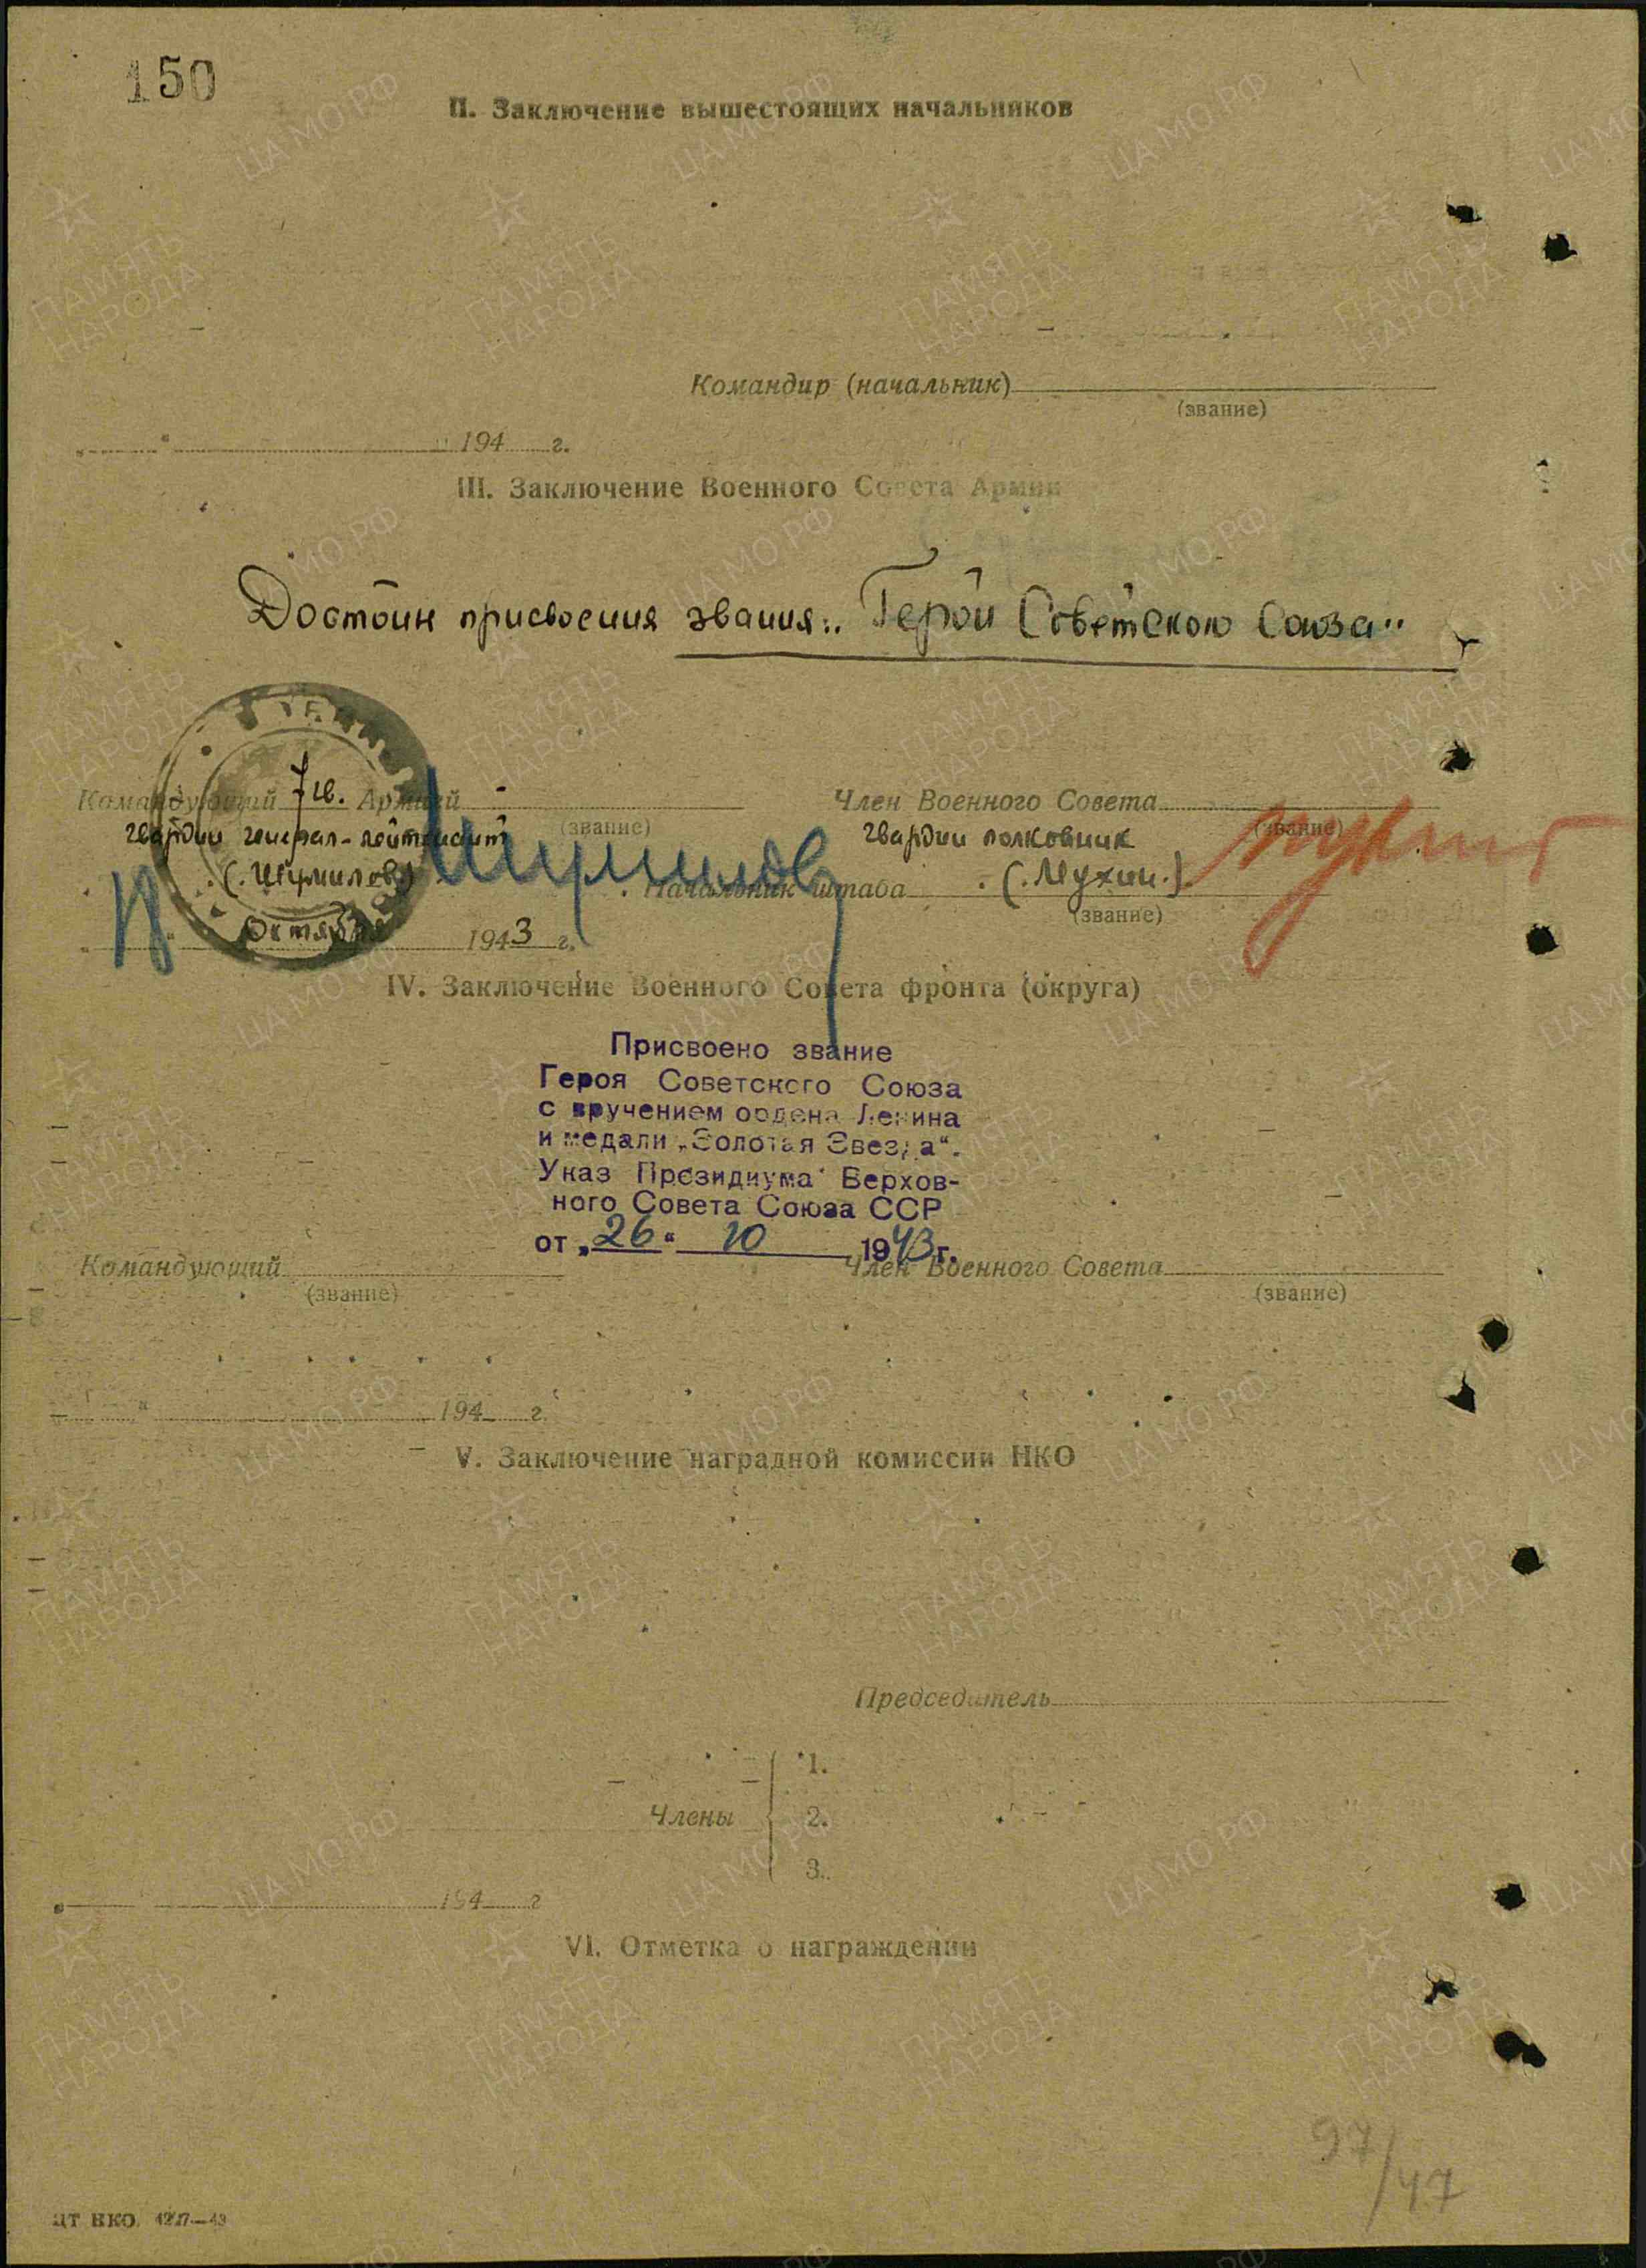 150
II. Заключение вышестоящих начальников
Командир (начальник)
(звание)
" " 194 г.
III. Заключение Военного Совета Армии
Достоин присвоения звания: „Герой Советского Союза"
Командующий 7 гв. Армией
(звание)
гвардии генерал-лейтенант
(Шумилов)
Шумилов
Член Военного Совета
(звание)
гвардии полковник
(Мухин.)
Начальник штаба
(звание)
Октября 1943 г.
IV. Заключение Военного Совета фронта (округа)
Присвоено звание
Героя Советского Союза
с вручением ордена Ленина
и медали „Золотая Звезда“.
Указ Президиума Верхов-
ного Совета Союза ССР
от „26“ 10 1943 г.
Командующий
(звание)
Член Военного Совета
(звание)
" " 194 г.
V. Заключение наградной комиссии НКО
Председатель
Члены
1.
2.
3.
" " 194 г
VI. Отметка о награждении
97/47
ЦТ НКО. 1217—43
ПАМЯТЬ НАРОДА
ЦА МО РФ